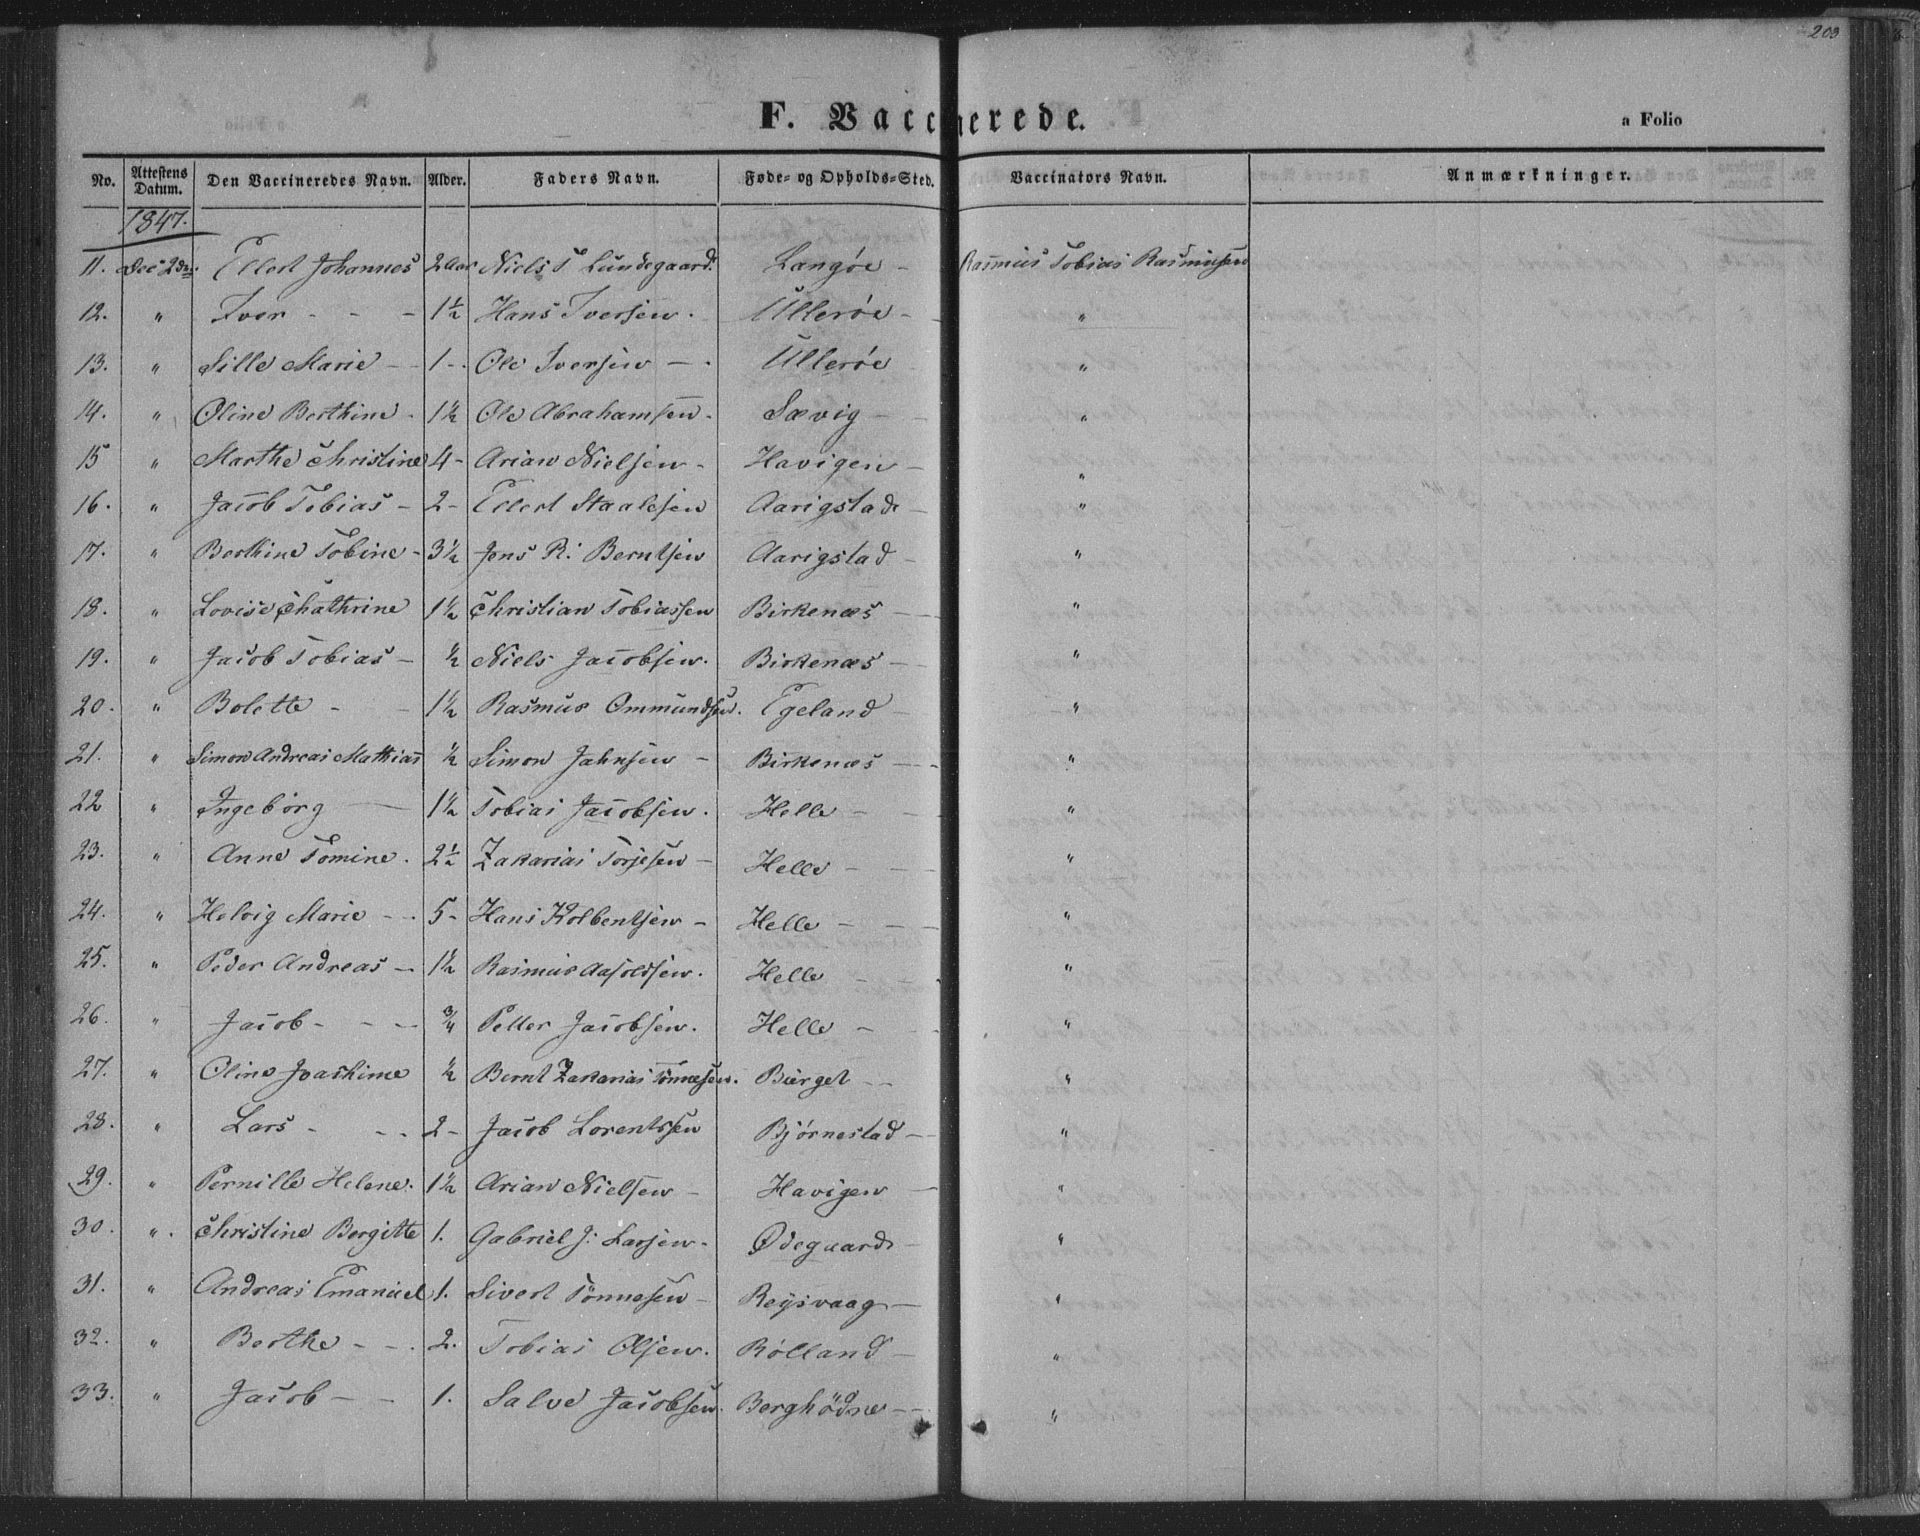 203
F. Vaccinerede.
a Folio
No. Attestens Datum. Den Vaccineredes Navn. Alder. Faders Navn. Føde- og Opholds-Sted. Vaccinators Navn. Anmærkninger.
1847.
11. Dec Ellert Johannes 2 Aar Niels T Lundegaard. Langøe - Rasmus Tobias Rasmussen
12. " Iver - - - 1½ Hans Iversen. Ullerøe - "
13. " Sille Marie - - 1 - . Ole Iversen - . Ullerøe "
14. " Oline Berthine - 1½ Ole Abrahamsen. Sævig - "
15 " Marthe Christine 4 - Arian Nielsen - Havigen - "
16. " Jacob Tobias - 2 - Ellert Staalesen Aarigstad - "
17. " Berthine Tobine - 3½ Jens R: Berntsen Aarigstad - "
18. " Lovise Chathrine 1½ Christian Tobiassen Birkenæs - "
19. " Jacob Tobias - ½ Niels Jacobsen. Birkenæs - "
20. " Bolette - - 1½ Rasmus Ommundsen. Egeland - "
21. " Simon Andreas Mathias ½ Simon Jahnsen - Birkenæs - - "
22 " Ingeborg - 1½ Tobias Jacobsen. Helle - - "
23. " Anne Tomine. 2½ Zakarias Torjesen - Helle - - "
24. " Helvig Marie - - 5 - Hans Kolbentsen - Helle - - "
25. " Peder Andreas - 1½ Rasmus Helle - - "
26. " Jacob - - - ¾ Petter Jacobsen. Helle - - "
27. " Oline Joachime ½ Bernt Zakarias Tønnesen. Bierget - - "
28. " Lars - - - 2 - Jacob Lorentssen Bjørnestad - "
29. " Pernille Helene. 1½ Arian Nielsen - Havigen - "
30. " . Christine Bergitte 1. Gabriel J: Larsen - Ødegaard - "
31. " Andreas Emanuel 1. Sivert Tönnesen - Reisvaag - "
32. " Berthe - - . 2. Tobias Olsen. Rölland - "
33. " Jacob - - 1. Salve Jacobsen. Berghödne - - "